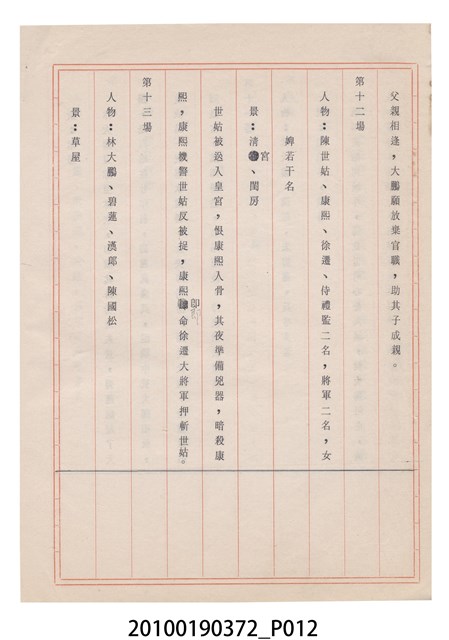 父親相逢，大鵬願放棄官職，助其子成親。
第十二場
人物：陳世姑、康熙、徐遷、侍禮監二名，將軍二名，女
婢若干名
景：清宮、閨房
世姑被送入皇宮，恨康熙入骨，其夜準備兇器，暗殺康
熙，康熙機警世姑反被捉，康熙即命徐遷大將軍押斬世姑。
第十三場
人物：林大鵬、碧蓮、漢郎、陳國松
景：草屋
20100190372_P012